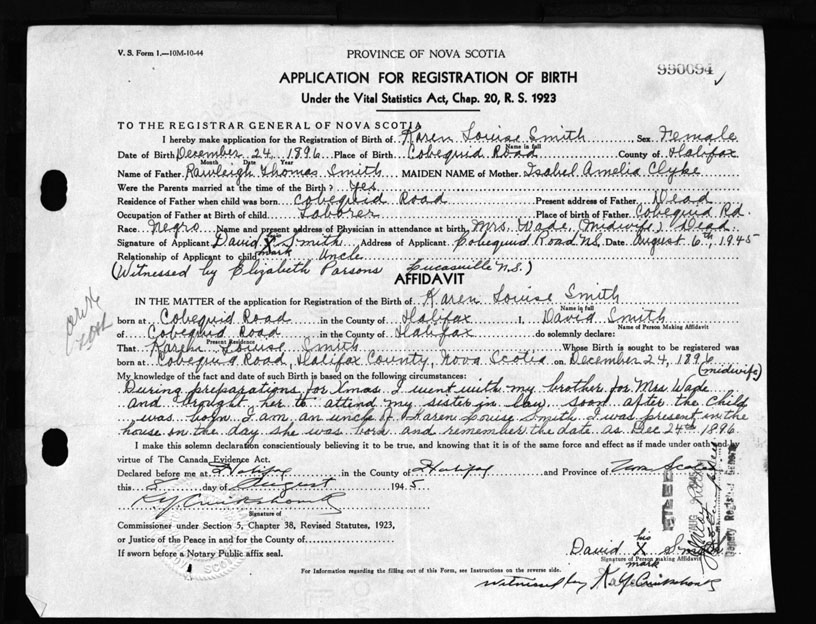 V. S. Form 1.—10M-10-44
PROVINCE OF NOVA SCOTIA
990694
APPLICATION FOR REGISTRATION OF BIRTH
Under the Vital Statistics Act, Chap. 20, R. S. 1923
TO THE REGISTRAR GENERAL OF NOVA SCOTIA
I hereby make application for the Registration of Birth of Karen Louise Smith Sex Female
Name in full
Date of Birth December 24, 1896 Place of Birth Cobequid Road County of Halifax
Month Date Year
Name of Father Rawleigh Thomas Smith MAIDEN NAME of Mother Isabel Amelia Clyke
Were the Parents married at the time of the Birth? Yes
Residence of Father when child was born Cobequid Road Present address of Father Dead
Occupation of Father at Birth of child Laborer Place of birth of Father Cobequid Rd.
Race Negro Name and present address of Physician in attendance at birth Mrs. Wade, (midwife) Dead
Signature of Applicant David his X mark Smith Address of Applicant Cobequid Road N.S. Date August 6th, 1945
Relationship of Applicant to child Uncle
(Witnessed by Elizabeth Parsons Lucasville N.S.)
AFFIDAVIT
IN THE MATTER of the application for Registration of the Birth of Karen Louise Smith
Name in full
born at Cobequid Road in the County of Halifax I, David Smith
Name of Person Making Affidavit
of Cobequid Road in the County of Halifax do solemnly declare:
Present Residence
That Karen Louise Smith Whose Birth is sought to be registered was
born at Cobequid Road, Halifax County, Nova Scotia on December 24, 1896
My knowledge of the fact and date of such Birth is based on the following circumstances: (midwife)
During preparations for Xmas, I went with my brother for Mrs Wade
and brought her to attend my sister in law, soon after the child
was born. I am an uncle of Karen Louise Smith. I was present in the
house on the day she was born and remember the date as Dec 24th 1896.
I make this solemn declaration conscientiously believing it to be true, and knowing that it is of the same force and effect as if made under oath and by
virtue of The Canada Evidence Act.
Declared before me at Halifax in the County of Halifax and Province of Nova Scotia
this 8 day of August 1945
Signature of
Commissioner under Section 5, Chapter 38, Revised Statutes, 1923,
or Justice of the Peace in and for the County of
If sworn before a Notary Public affix seal.
David his X mark Smith
Signature of Person making Affidavit
For Information regarding the filling out of this Form, see Instructions on the reverse side.
Witnessed by
FILED
Deputy Registrar General